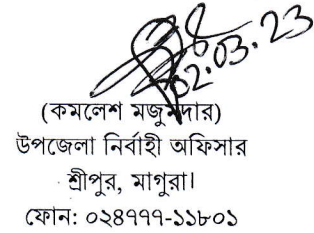 02.03.23
(কমলেশ মজুমদার)
উপজেলা নির্বাহী অফিসার
শ্রীপুর, মাগুরা।
ফোন: ০২৪৭৭৭-১১৮০১